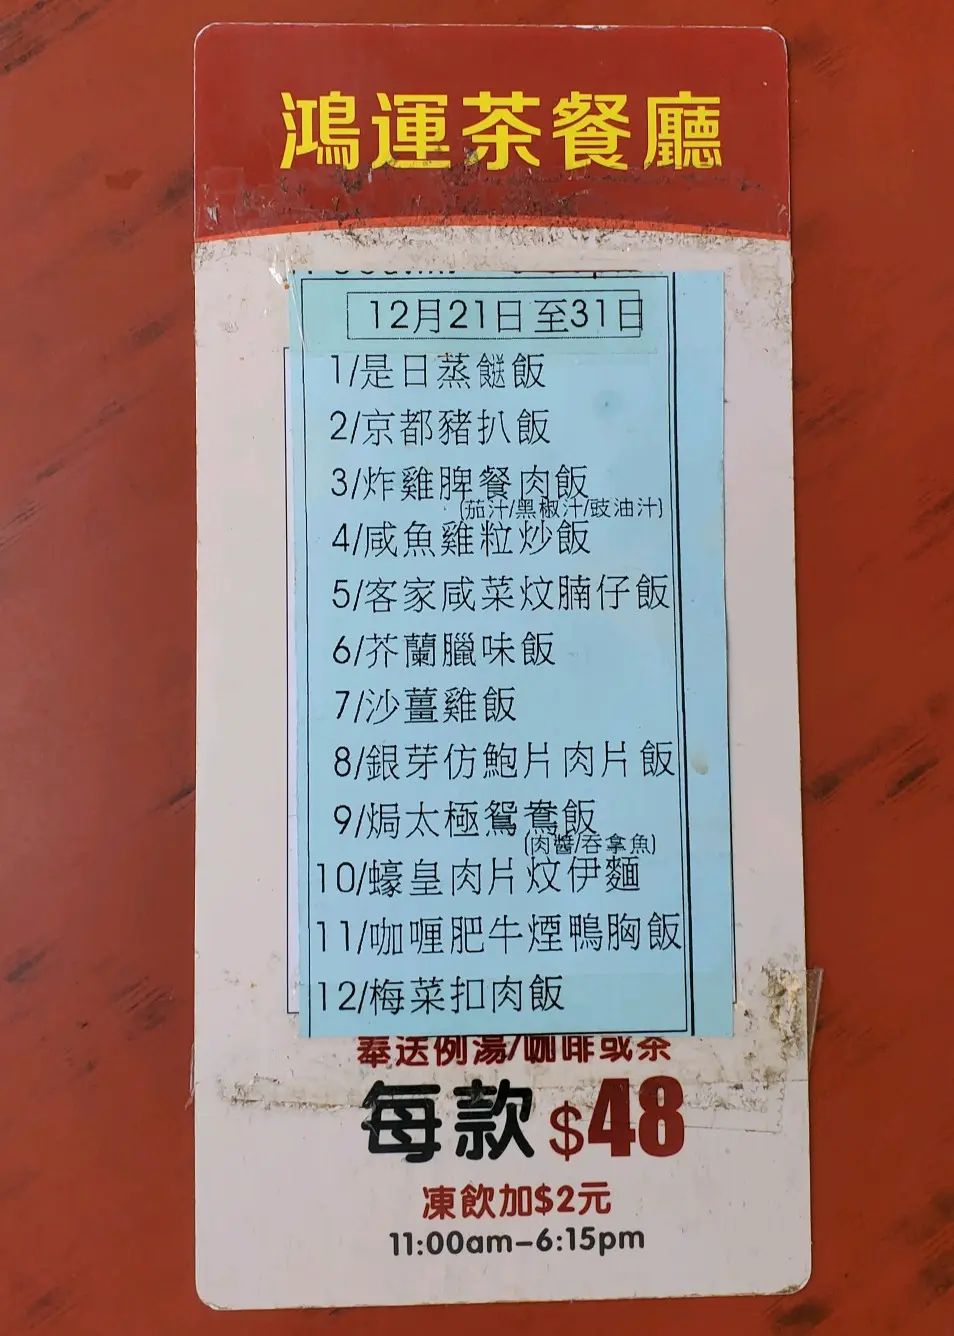 鴻運茶餐廳
12月21日至31日
1/是日蒸餸飯
2/京都豬扒飯
3/炸雞脾餐肉飯
(茄汁/黑椒汁/豉油汁)
4/咸魚雞粒炒飯
5/客家咸菜炆腩仔飯
6/芥蘭臘味飯
7/沙薑雞飯
8/銀芽仿鮑片肉片飯
9/焗太極鴛鴦飯
(肉醬/吞拿魚)
10/蠔皇肉片炆伊麵
11/咖喱肥牛煙鴨胸飯
12/梅菜扣肉飯
奉送例湯/咖啡或茶
每款$48
凍飲加$2元
11:00am–6:15pm